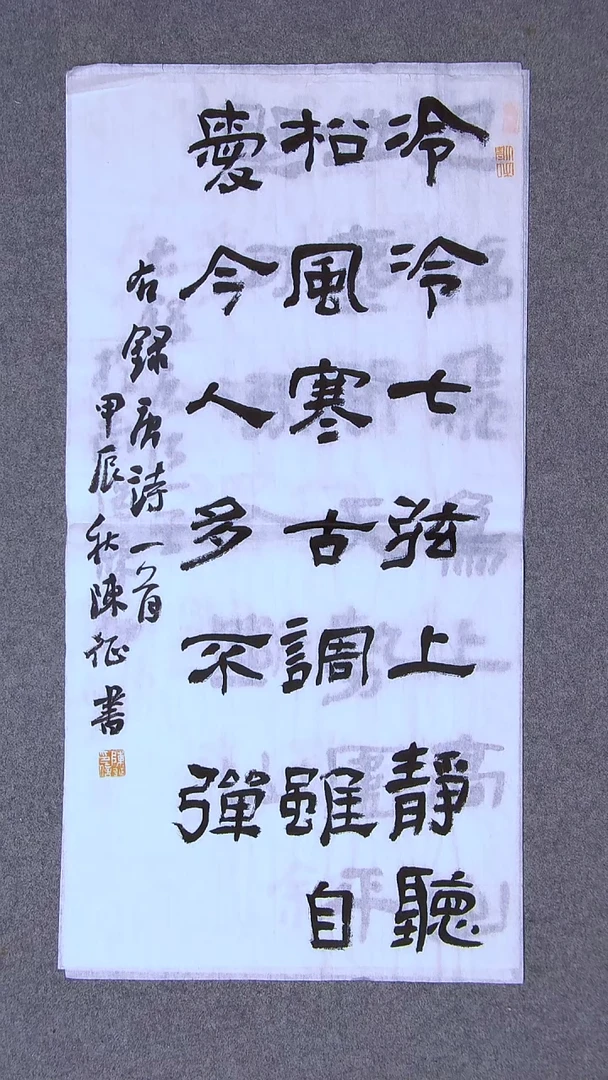 泠泠七弦上靜聽
松風寒古調雖自
愛今人多不彈
右録唐詩一首
甲辰秋陳征書